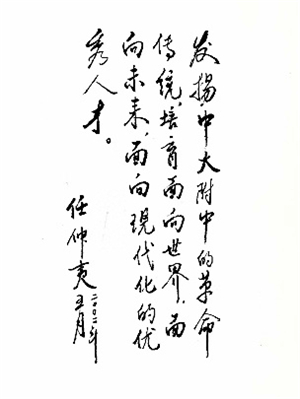 发扬中大附中的革命
传统,培育面向世界、面
向未来、面向现代化的优
秀人才。
任仲夷
二〇〇二年
五月